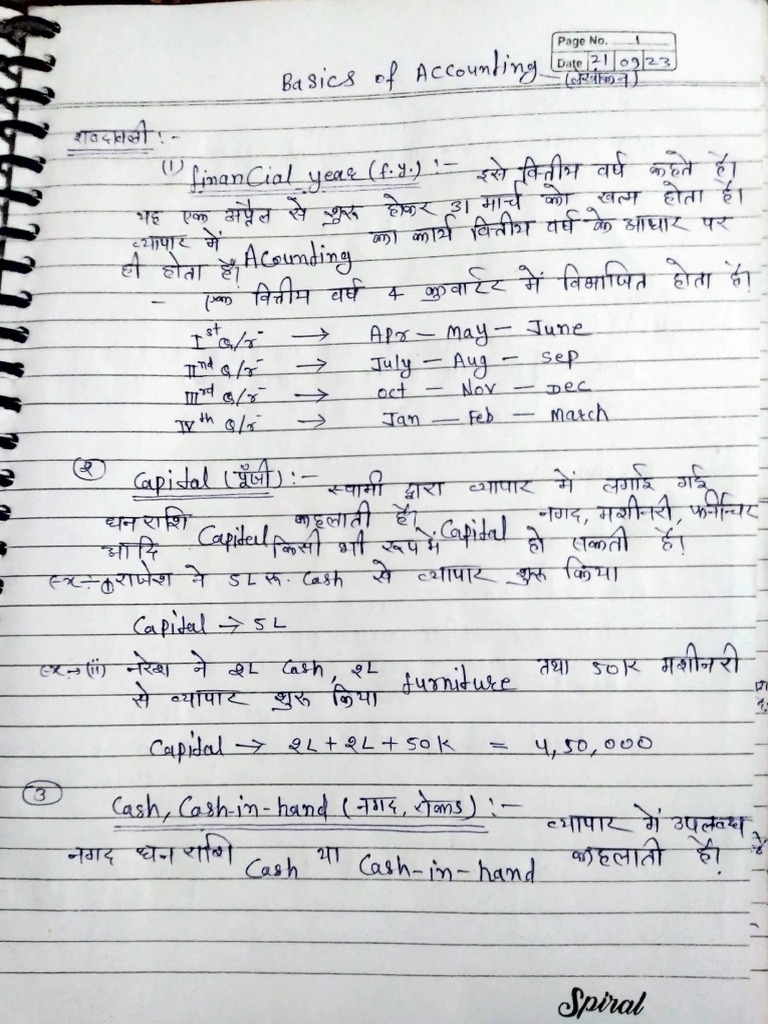 Page No. 1
Date 21 09 23
Basics of Accounting
(लेखांकन)
शब्दावली :-
(1) financial year (f.y.) :- इसे वित्तीय वर्ष कहते है।
यह एक अप्रैल से शुरू होकर 31 मार्च को खत्म होता है।
व्यापार में Acounting का कार्य वित्तीय वर्ष के आधार पर
ही होता है।
- एक वित्तीय वर्ष 4 कुवार्टर में विभाजित होता है।
Ist Q/r → Apr - May - June
IInd Q/r → July - Aug - Sep
IIIrd Q/r → oct - Nov - Dec
IVth Q/r → Jan - Feb - March
(२) Capital (पूँजी) :- स्वामी द्वारा व्यापार में लगाई गई
धनराशि Capital कहलाती है। नगद, मशीनरी, फर्नीचर
आदि किसी भी रूप में Capital हो सकती है।
ex → (i) राजेश ने 5L रू. Cash से व्यापार शुरू किया
Capital → 5L
ex → (ii) नरेश ने २L Cash, २L furniture तथा 50K मशीनरी
से व्यापार शुरू किया
Capital → २L + २L + 50K = 4,50,000
(3) Cash, Cash-in-hand (नगद, रोकड) :- व्यापार में उपलब्ध
नगद धन राशि Cash या Cash-in-hand कहलाती है।
Spiral